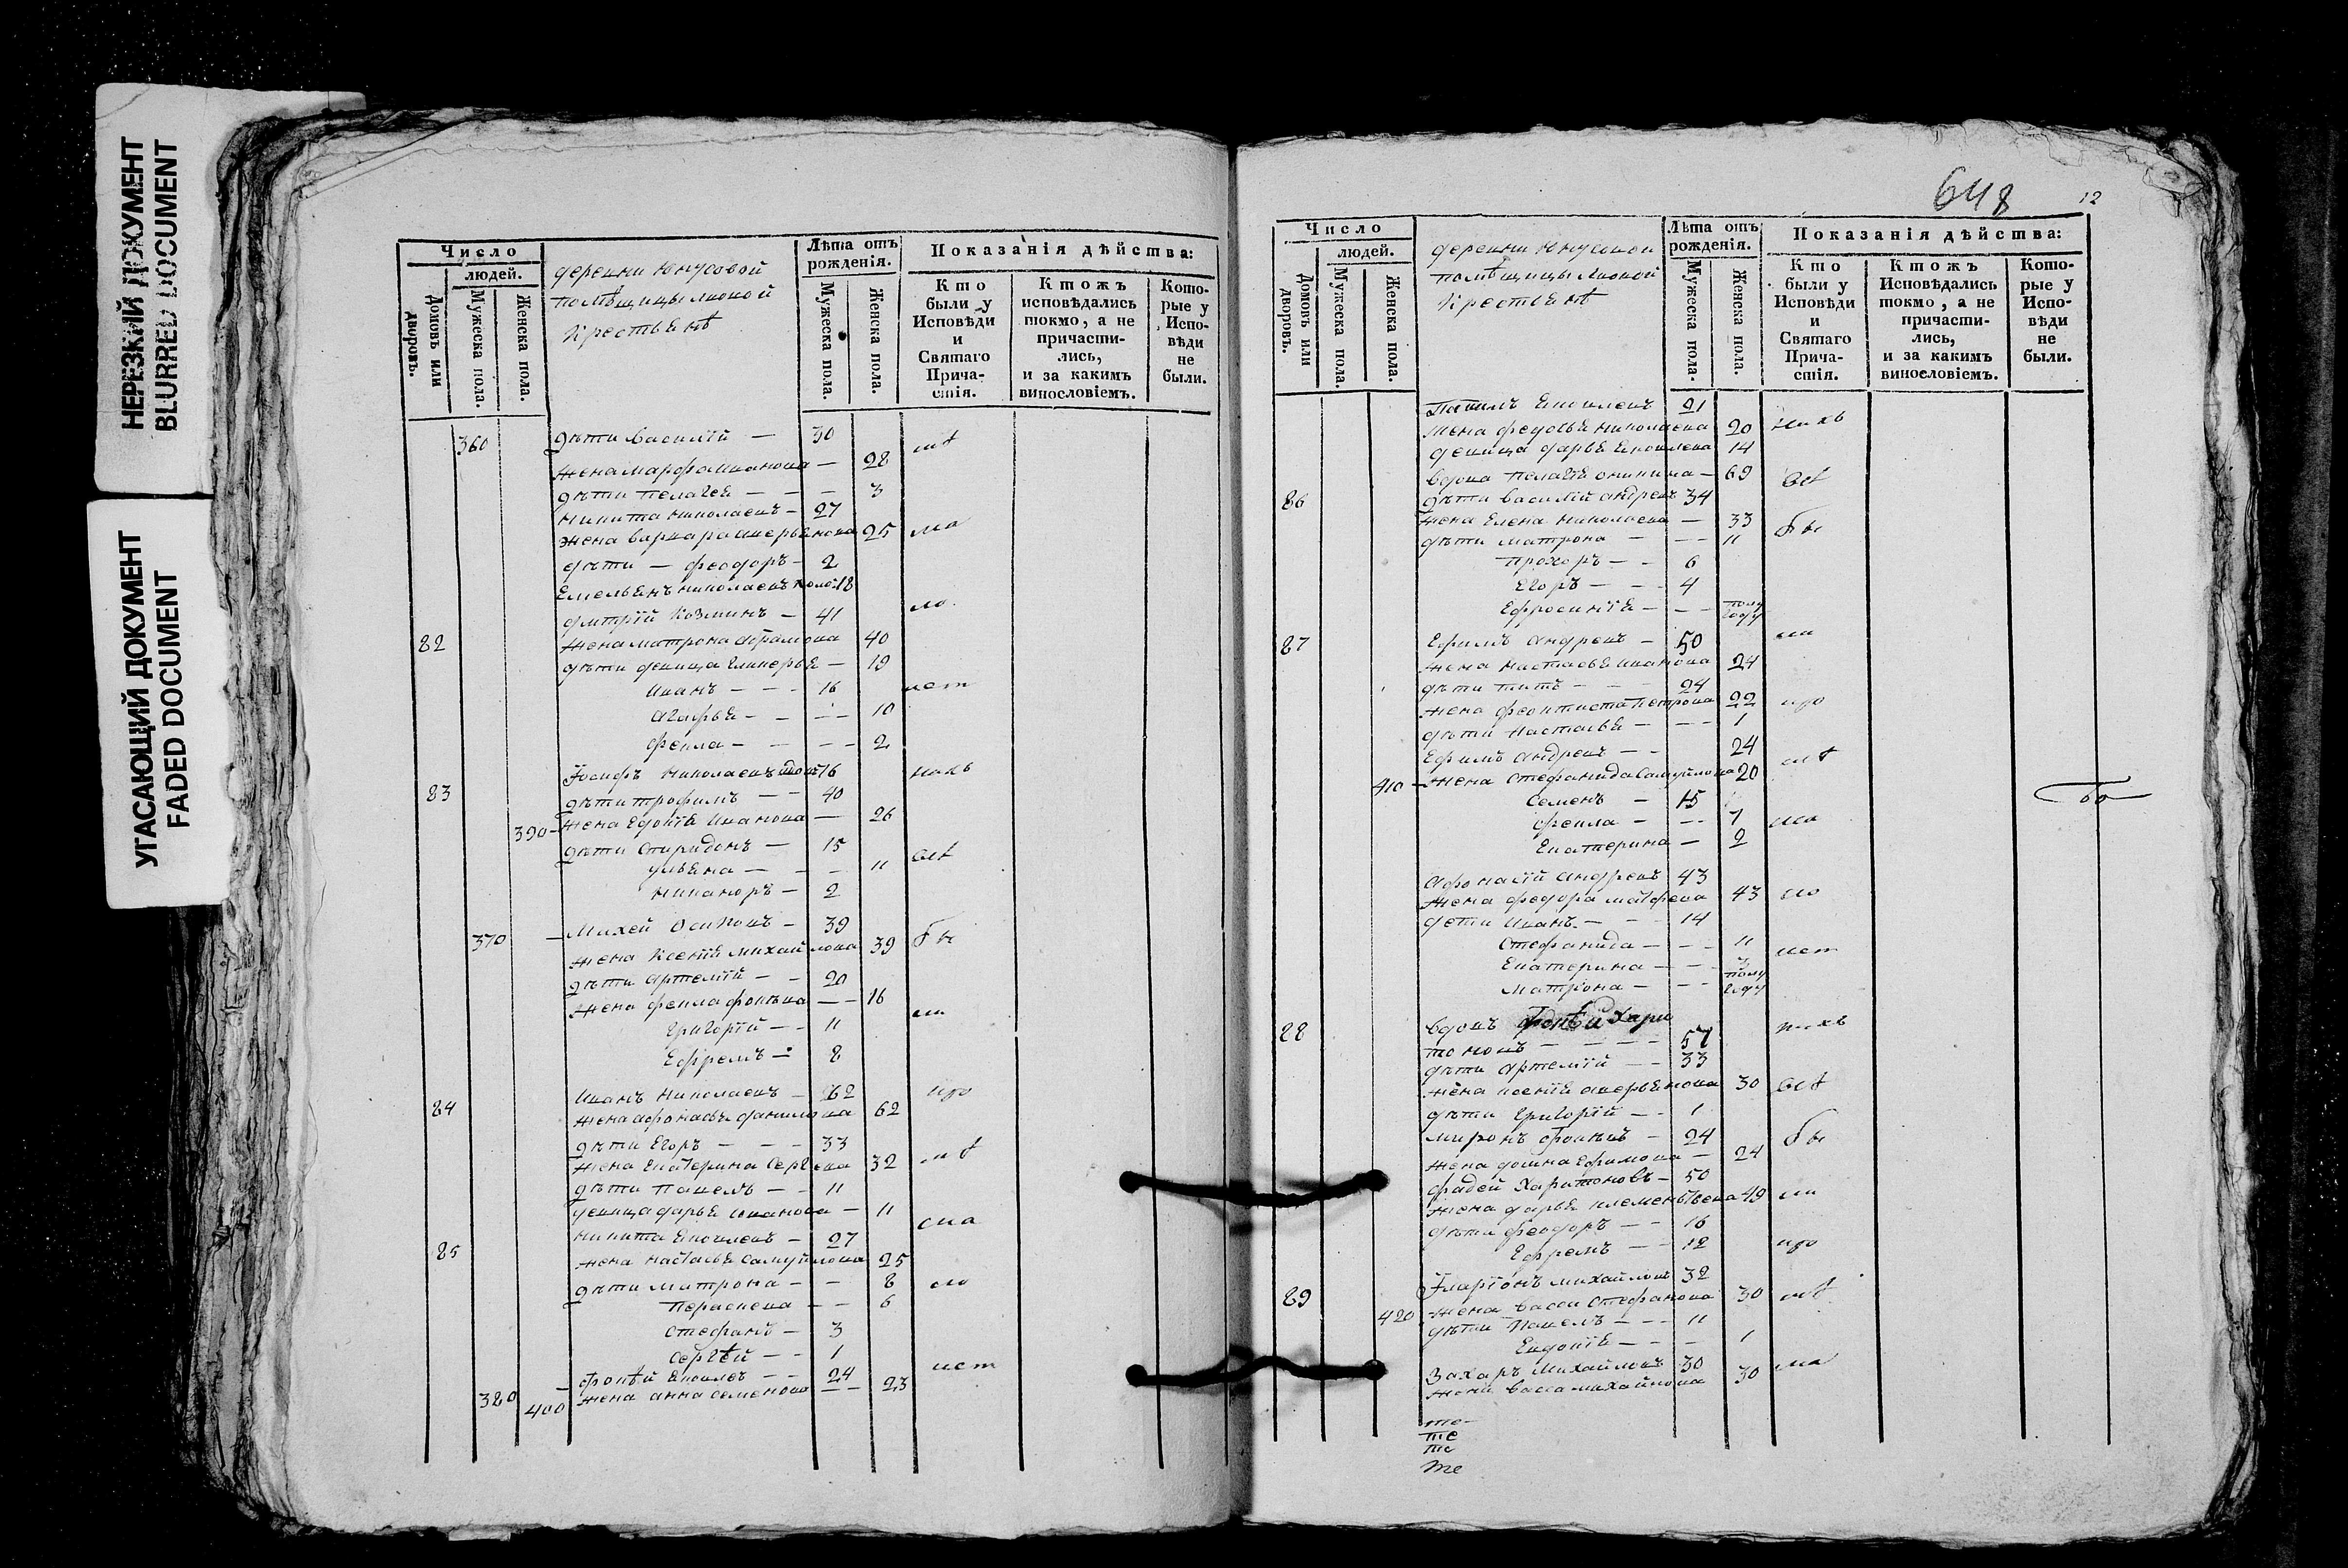 НЕРЕЗКИЙ ДОКУМЕНТ
BLURRED DOCUMENT
УГАСАЮЩИЙ ДОКУМЕНТ
FADED DOCUMENT
Число
людей.
Домовъ или дворовъ.
Мужеска пола.
Женска пола.
деревни Юнусовой
помѣщицы
крестьянѣ
Лѣта отъ рожденія.
Мужеска пола.
Женска пола.
Показанія дѣйства:
Кто были у Исповѣди и Святаго Причастія.
Ктожъ исповѣдались токмо, а не причастились, и за какимъ винословіемъ.
Которые у Исповѣди не были.
360 дѣти Василій — 30
жена Марфа Иванова — 28
дѣти Пелагея — — — 3
Никита Николаевъ — 27
жена Варвара Аверьянова 25
дѣти — Феодоръ — 2
Емельянъ Николаевъ 18
Дмитрій Козминъ — 41
82 жена Матрона Абрамова 40
дѣти девица Гликерья — 19
Иванъ — — — 16
Агафья — — — — 10
Фекла — — — — 2
Іосифъ Николаевъ 16
83 дѣти Трофимъ — — 40
390 — жена Евдокія Иванова — 26
дѣти Спиридонъ — 15
Ульяна — — — 11
Никаноръ — 2
370 — Михей Осиповъ — 39
жена Ксенія Михайлова 39
дѣти Артемій — — 20
жена Фекла Фокѣева — — 16
Григорій — — 11
Ефремъ — 8
84 Иванъ Николаевъ — 62
жена Афонасья Данилова 62
дѣти Егоръ — — — 33
жена Екатерина Сергѣева 32
дѣти Павелъ — — 11
девица Дарья Иванова — 11
Никита Яковлевъ — 27
85 жена Настасья Самуйлова 25
дѣти Матрона — — 8
Параскева — — 6
Стефанъ — 3
Сергѣй — — 1
380 — Фокѣй Яковлевъ — — 24
400 жена Анна Семенова — — 23
648
12
Число
людей.
Домовъ или дворовъ.
Мужеска пола.
Женска пола.
деревни Юнусовой
помѣщицы
крестьянѣ
Лѣта отъ рожденія.
Мужеска пола.
Женска пола.
Показанія дѣйства:
Кто были у Исповѣди и Святаго Причастія.
Ктожъ Исповѣдались токмо, а не причастились, и за какимъ винословіемъ.
Которые у Исповѣди не были.
Яковлевъ 21
жена Федосья Николаева 20
девица Дарья Яковлева 14
вдова Пелагія — 69
86 дѣти Василій Андреевъ 34
жена Елена Николаева — 33
дѣти Матрона — — — 11
Прохоръ — — 6
Егоръ — — — 4
Ефросинія — — — полу году
87 Ефимъ Андреевъ — 50
жена Настасья Иванова 24
дѣти Титъ — — — 24
жена Феоктиста Петрова 22
дѣти Настасья — — — 1
Ефимъ Андреевъ — — 24
410 — жена Стефанида Самуйлова 20
Семенъ — 15
Фекла — — — 7
Екатерина — 2
Афонасій Андреевъ 43
жена Федора Матфеева 43
дети Иванъ — — — 14
Стефанида — — — 11
Екатерина — — — 3
Матрона — — — полу году
88 вдовъ Фокѣй Хари
тоновъ — — — — 57
дѣти Артемій — — 33
жена Ксенія Аверьянова 30
дѣти Григорій — — 1
Миронъ Фокѣевъ — 24
жена Ефимова — 24
Фадей Харитоновъ — 50
жена Дарья Клементьева 49
дѣти Феодоръ — — 16
Ефремъ — — 12
89 Іларіонъ Михайловъ 32
420 жена Васса Стефанова 30
дѣти Павелъ — — — 11
Евдокія — — — 1
Захаръ Михайловъ 30
жена Васса Михайлова 30
те
те
те
те